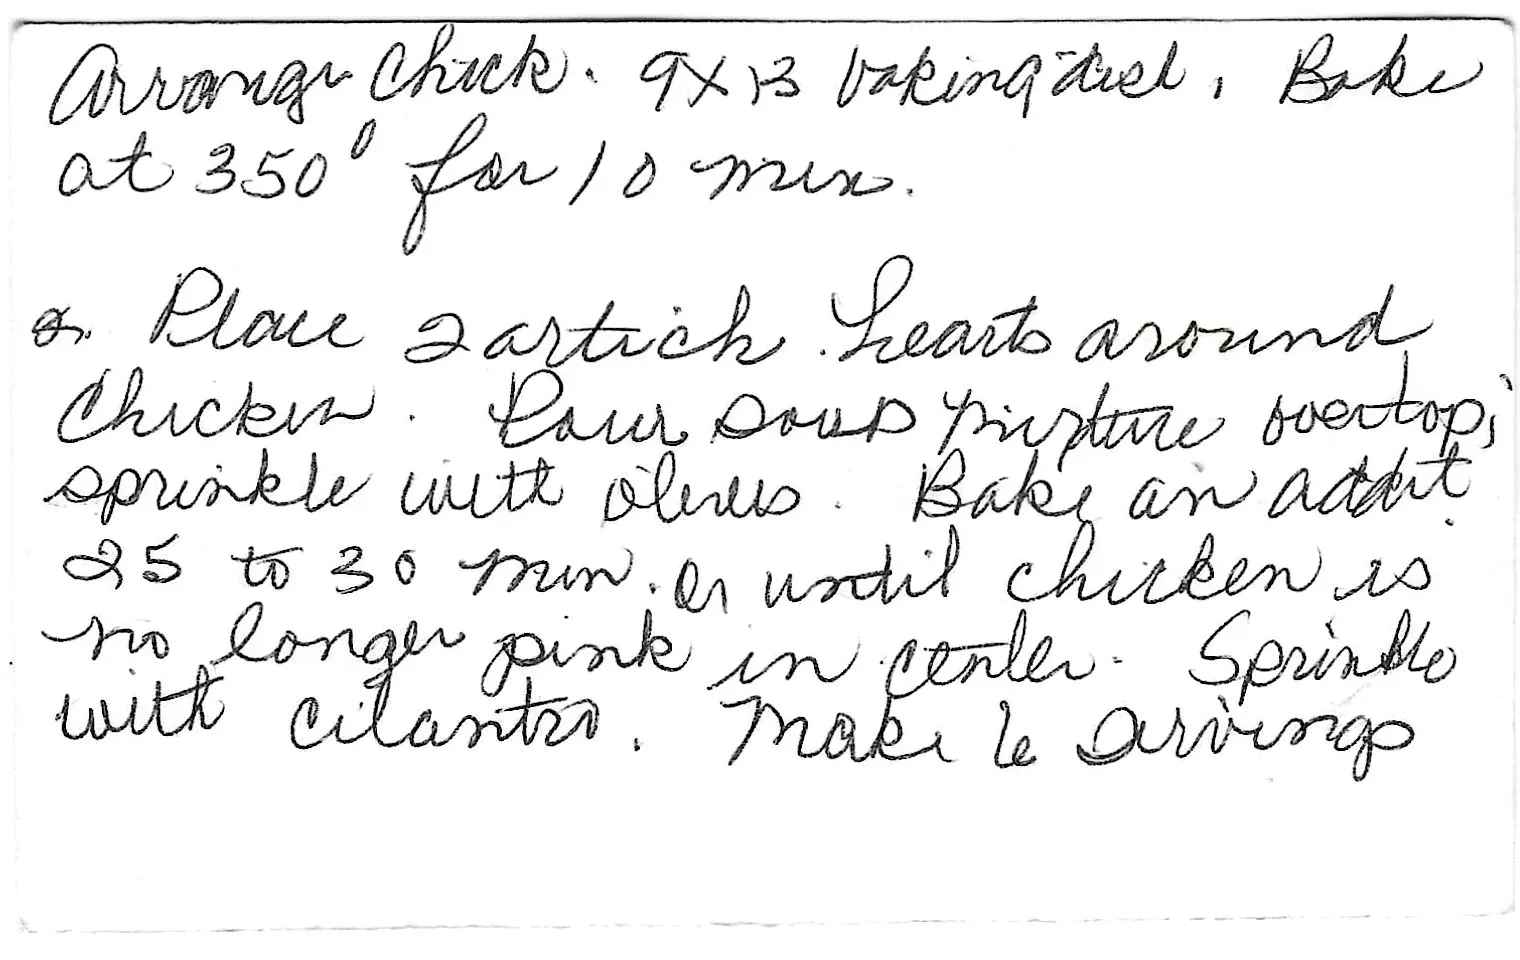 Arrange Chick. 9x13 baking dish. Bake
at 350° for 10 min.
2. Place 2 artich. hearts around
Chicken. Pour soup mixture overtop;
sprinkle with olives. Bake an addit.
25 to 30 min. or until chicken is
no longer pink in center. Sprinkle
with cilantro. Make 6 servings